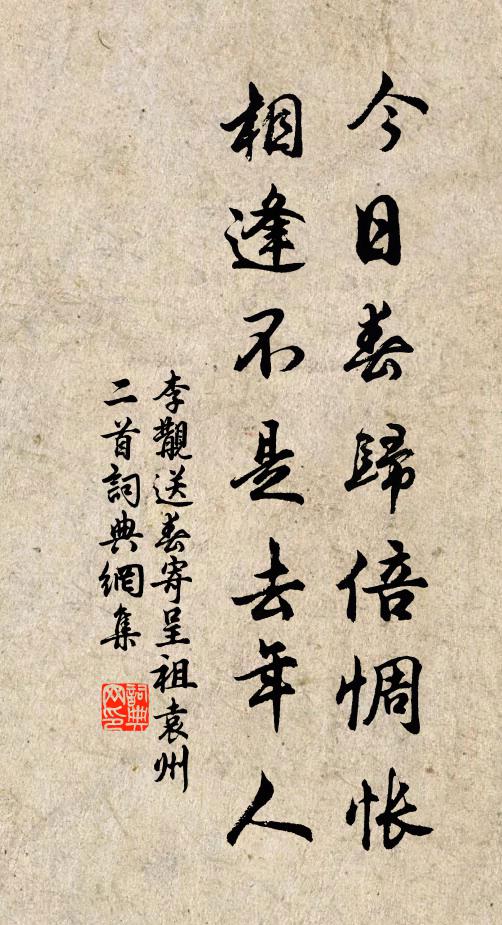 今日春歸倍惆悵
相逢不是去年人
李覯送春寄呈祖袁州
二首詞典網集
詞典网印